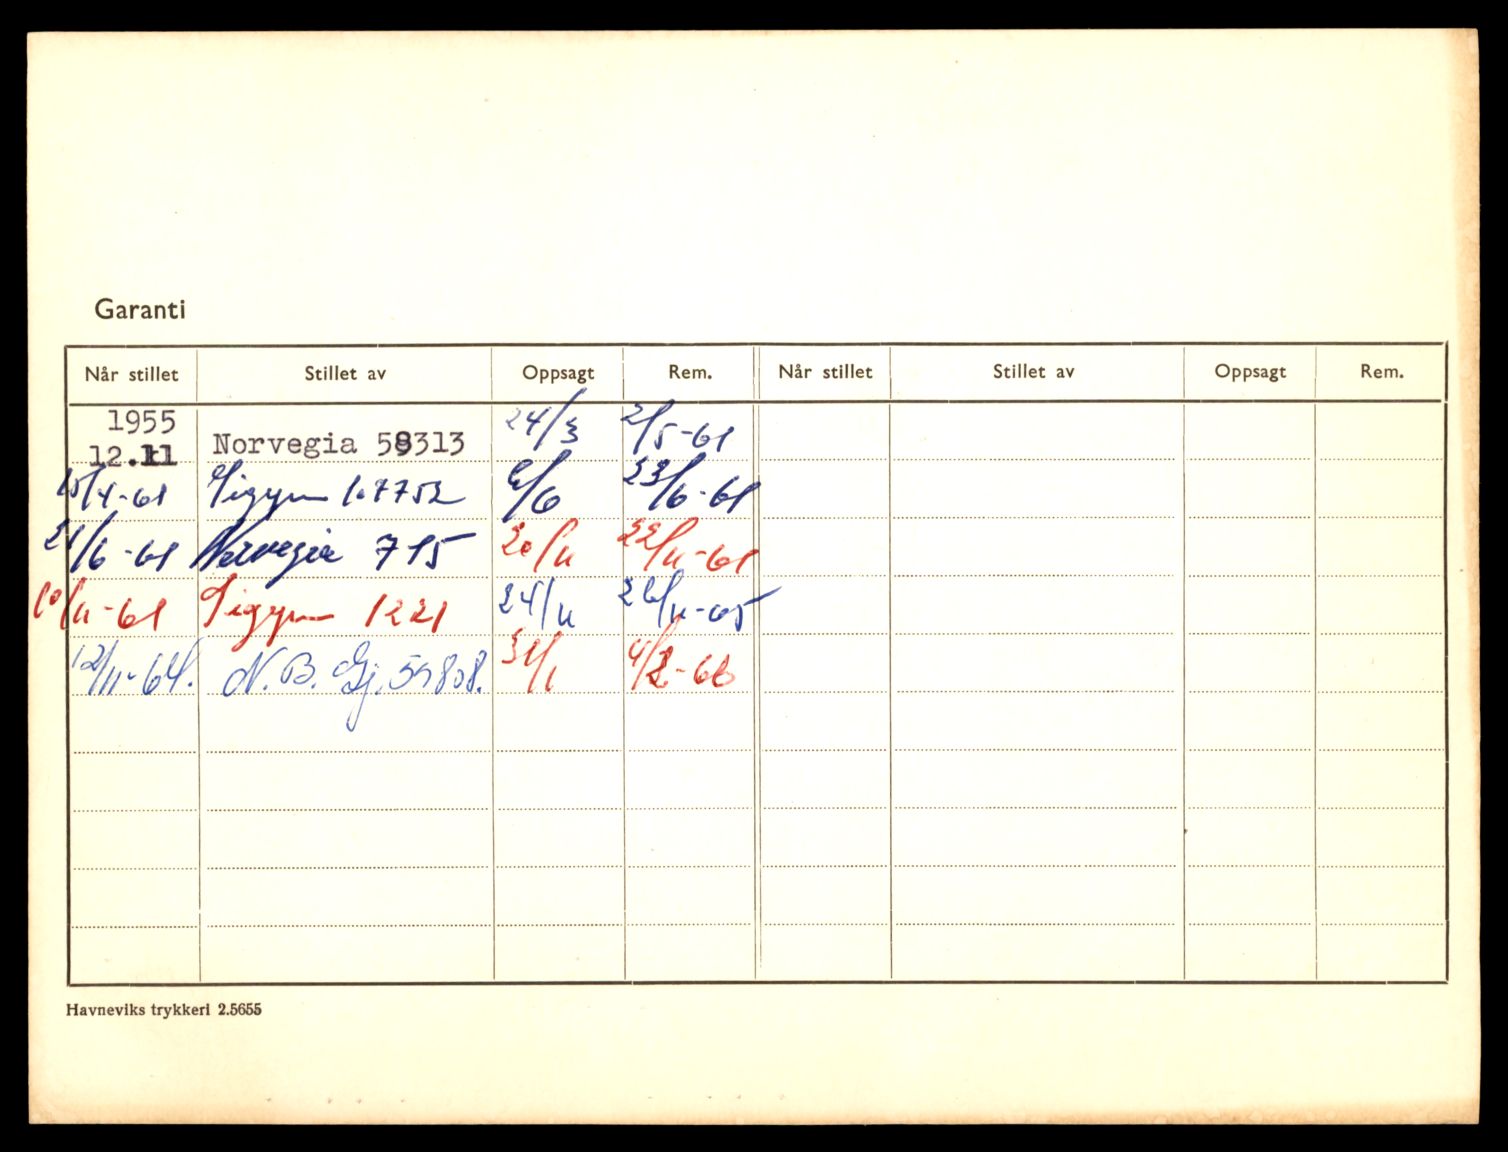 Garanti
Når stillet Stillet av Oppsagt Rem. Når stillet Stillet av Oppsagt Rem.
1955
12.11 Norvegia 58313 24/3 2/5-61
15/4-61 Sigyn 107752 6/6 23/6-61
21/6-61 Norvegia 715 20/11 22/11-61
10/11-61 Sigyn 1221 24/11 26/11-65
12/11-64. N.B. Gj. 59808. 31/1 4/2-66
Havneviks trykkeri 2.5655